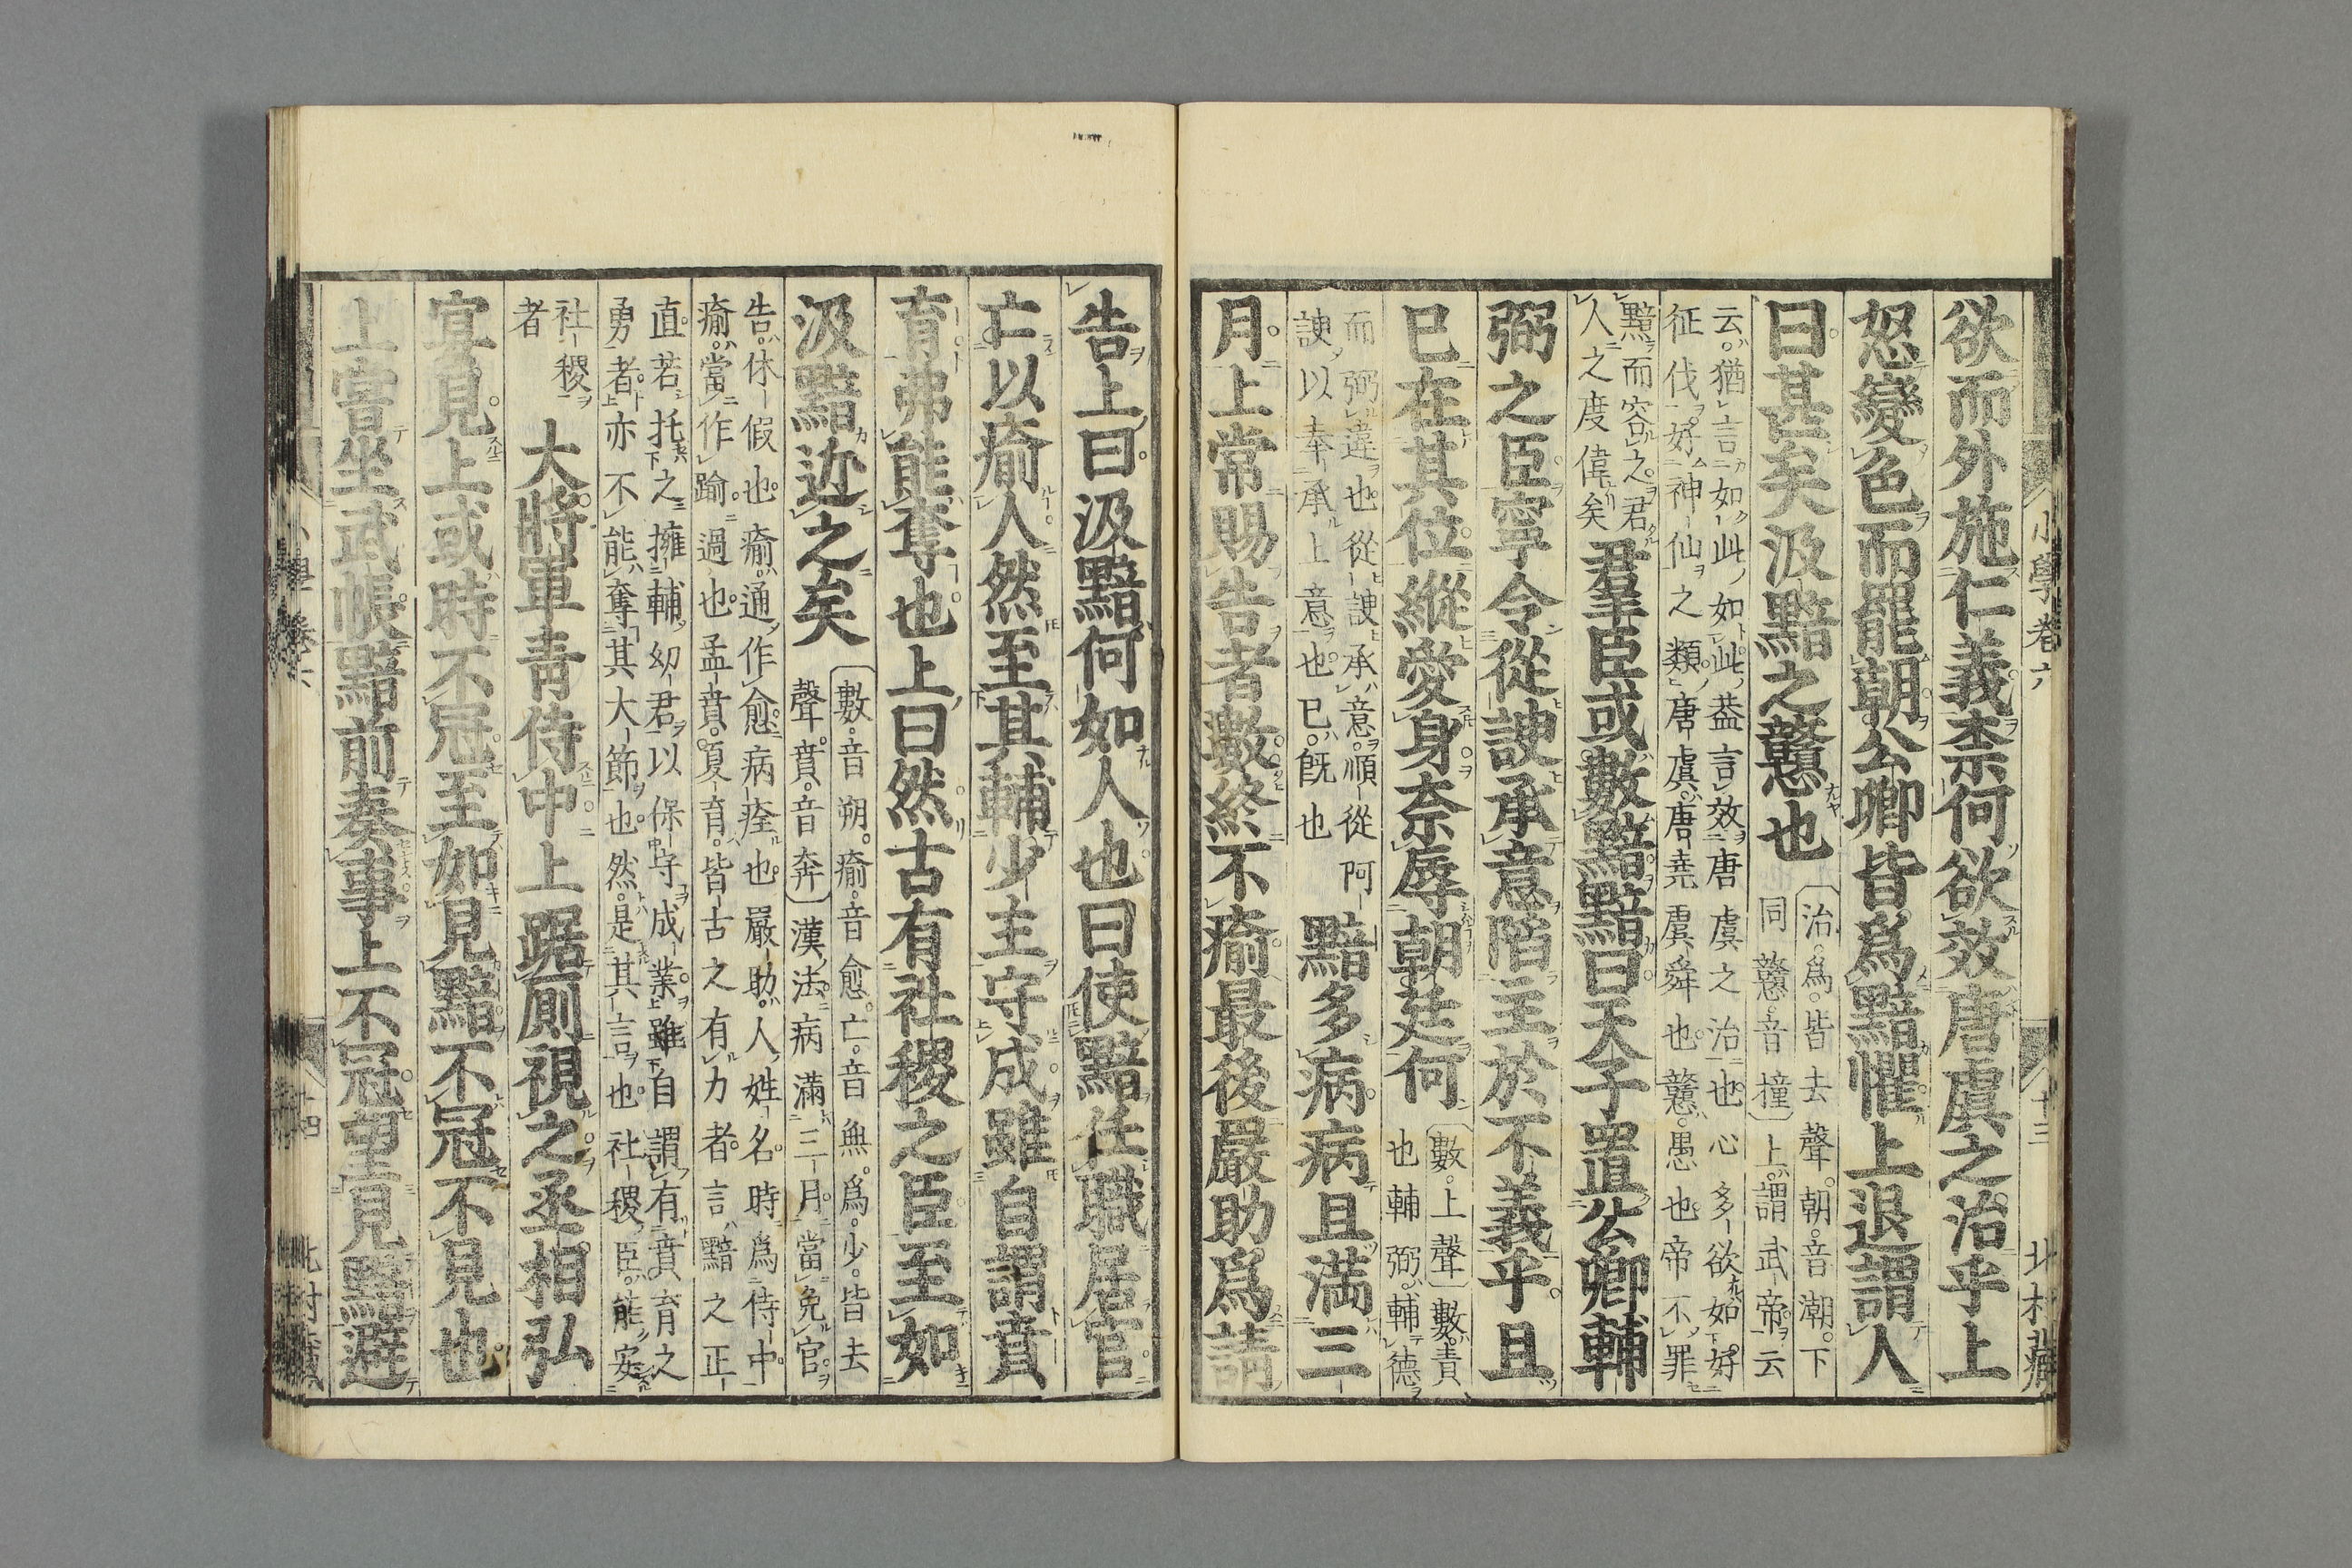 小學卷六 十三 北村藏
欲而外施仁義柰何欲效唐虞之治乎上
怒變色而罷朝公卿皆爲黯懼上退謂人
曰甚矣汲黯之戇也
治。爲。皆去聲。朝。音潮。下
同戇。音撞上謂武帝云
云。猶言如此如此葢言效唐虞之治也心多欲如好
征伐好神仙之類唐虞唐堯虞舜也戇愚也帝不罪
黯而容之君
人之度偉矣
羣臣或數黯黯曰天子置公卿輔
弼之臣寧令從諛承意陷主於不義乎且
已在其位縱愛身柰辱朝廷何
數。上聲數責
也輔弼輔德
而弼違也從諛承意順從阿
諛以奉承上意也已既也
黯多病病且滿三
月上常賜告者數終不瘉最後嚴助爲請
告上曰汲黯何如人也曰使黯任職居官
亡以瘉人然至其輔少主守成雖自謂賁
育弗能奪也上曰然古有社稷之臣至如
汲黯近之矣
數。音朔。瘉。音愈。亡。音無。爲。少。皆去
聲。賁。音奔漢法病滿三月當免官
告休假也瘉通作愈病痊也嚴助人姓名時爲侍中
瘉當作踰過也孟賁夏育皆古之有力者言黯之正
直若托之擁輔幼君以保守成業雖自謂有賁育之
勇者亦不能奪其大節也然是其言也社稷臣能安
社稷
者
大將軍靑侍中上踞廁視之丞相弘
宴見上或時不冠至如見黯不冠不見也
上嘗坐武帳黯前奏事上不冠望見黯避
小學卷六 十四 北村藏